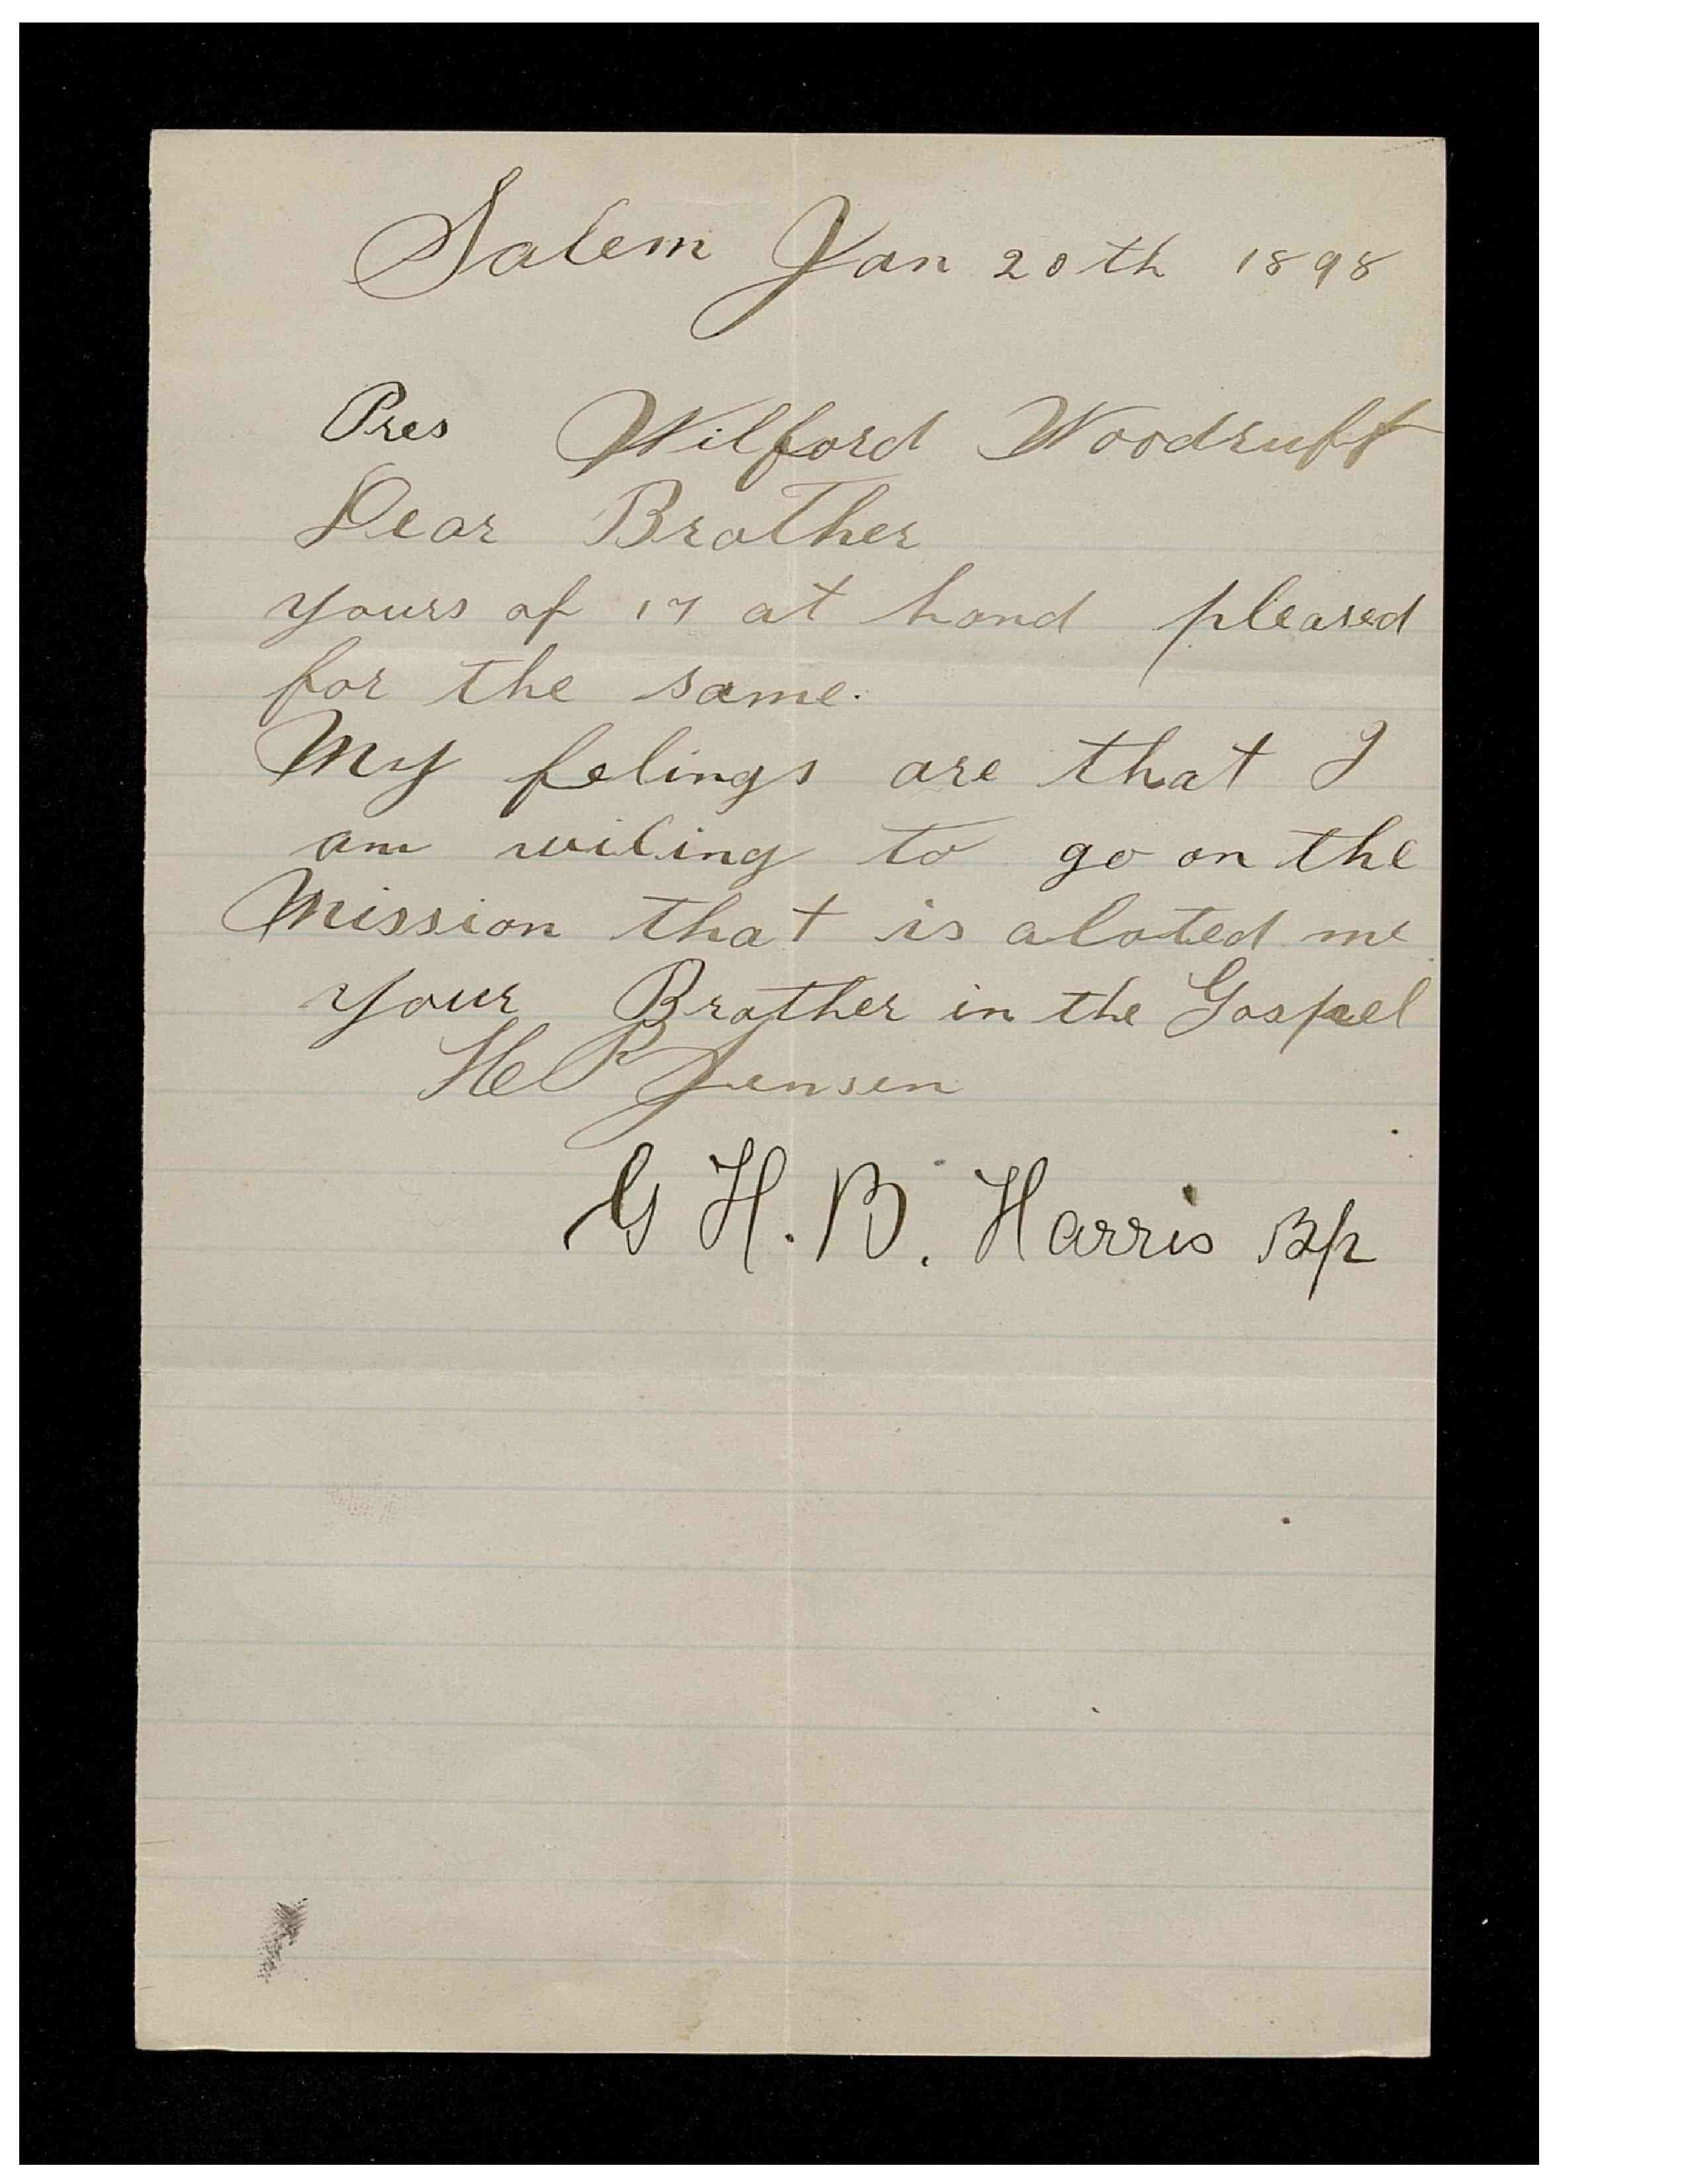 Salem Jan 20th 1898
Pres Wilford Woodruff
Dear Brother
yours of 17 at hand pleased
for the same.
My felings are that I
am wiling to go on the
Mission that is aloted me
your Brother in the Gospel
H P Jensen
G H. B. Harris Bp